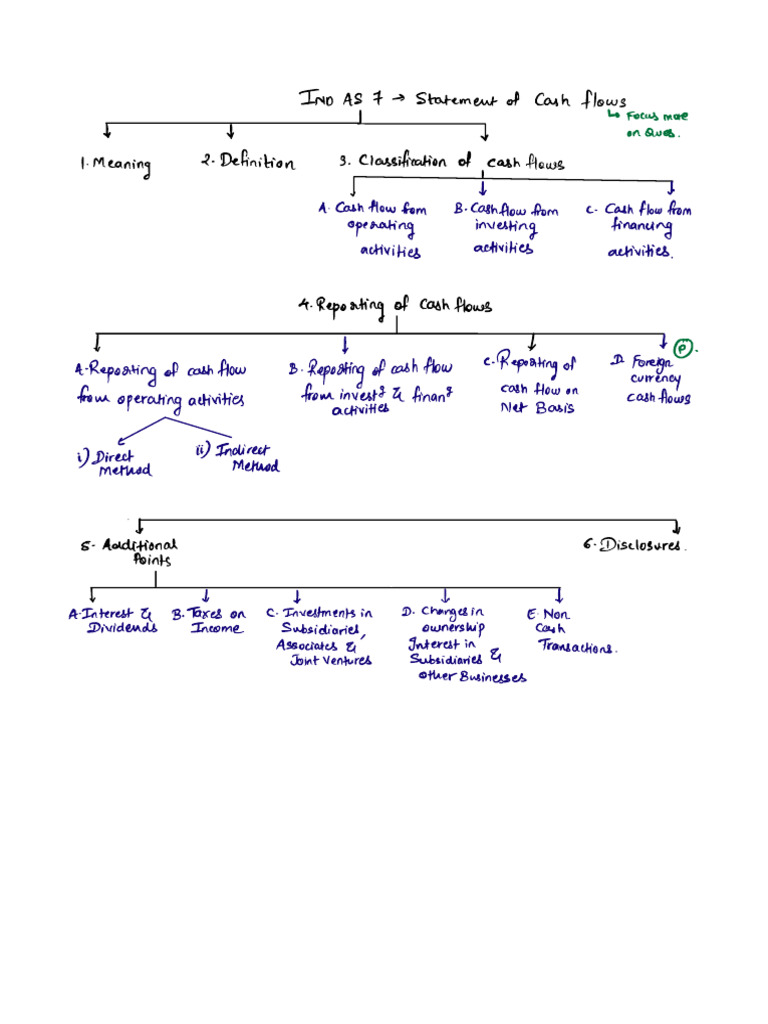 IND AS 7 → Statement of Cash flows
↳ Focus more
on Ques.
1. Meaning
2. Definition
3. Classification of cash flows
A. Cash flow from
operating
activities
B. Cashflow from
investing
activities
C. Cash flow from
financing
activities.
4. Reporting of Cash flows
A. Reporting of cash flow
from operating activities
i) Direct
Method
ii) Indirect
Method
B. Reporting of cash flow
from investg & finang
activities
C. Reporting of
cash flow on
Net Basis
D. Foreign
currency
cash flows
P.
5. Additional
Points
6. Disclosures.
A. Interest &
Dividends
B. Taxes on
Income
C. Investments in
Subsidiaries,
Associates &
Joint Ventures
D. Changes in
ownership
Interest in
Subsidiaries &
other Businesses
E. Non
Cash
Transactions.